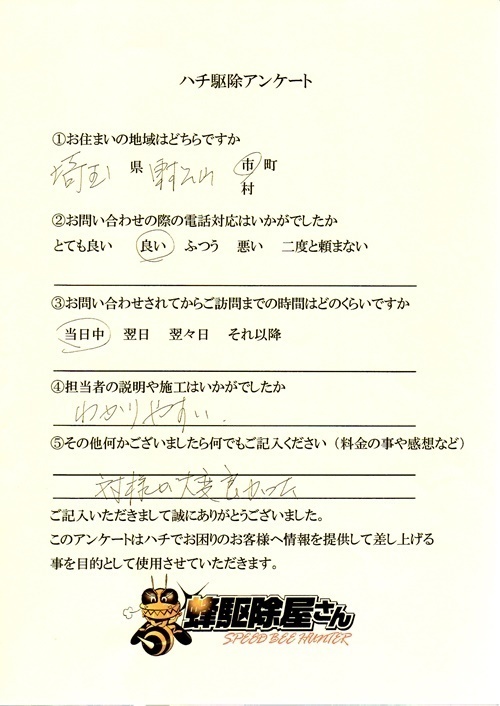 ハチ駆除アンケート
①お住まいの地域はどちらですか
埼玉 県 市 町
村
②お問い合わせの際の電話対応はいかがでしたか
とても良い 良い ふつう 悪い 二度と頼まない
③お問い合わせされてからご訪問までの時間はどのくらいですか
当日中 翌日 翌々日 それ以降
④担当者の説明や施工はいかがでしたか
わかりやすい.
⑤その他何かございましたら何でもご記入ください（料金の事や感想など）
大変良かった
ご記入いただきまして誠にありがとうございました。
このアンケートはハチでお困りのお客様へ情報を提供して差し上げる
事を目的として使用させていただきます。
蜂駆除屋さん
SPEED BEE HUNTER